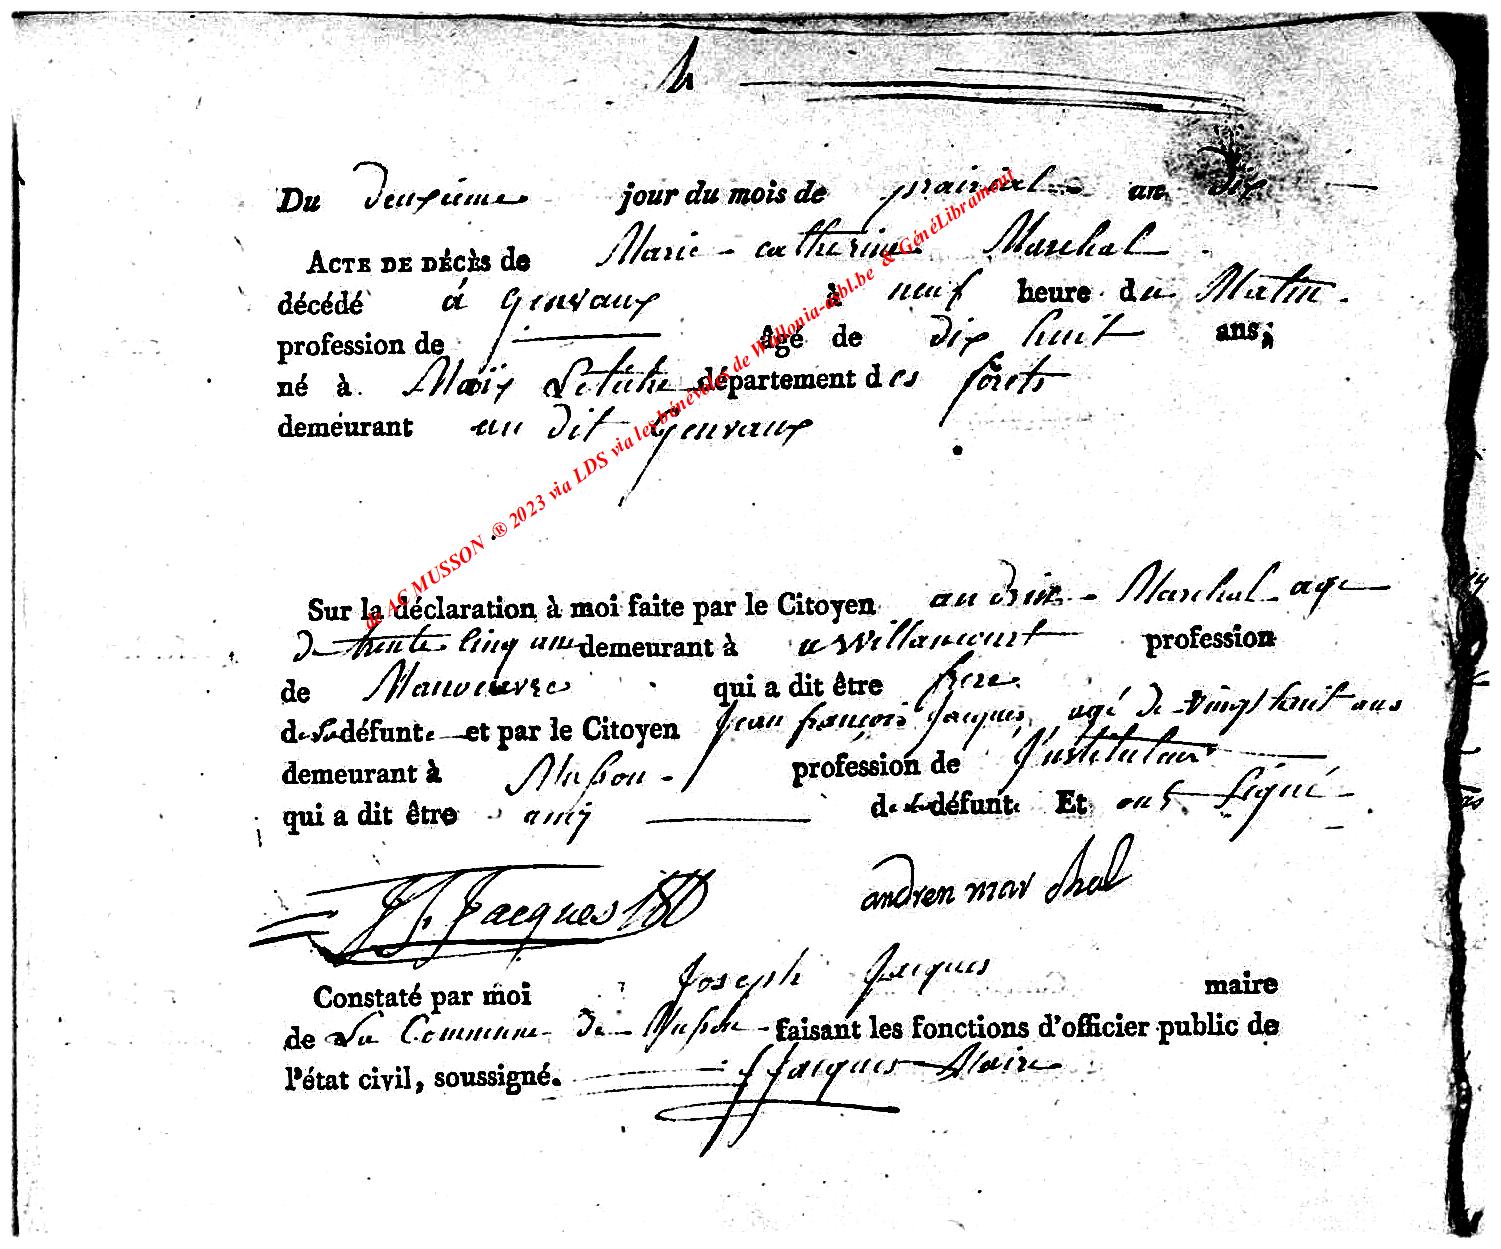 4
Du deuxieme jour du mois de prairial an dix
ACTE DE DÉCÈS de Marie - catherine Marchal
décédé á Genvaux à neuf heure du Matin -
profession de âgé de dix huit ans;
né à département des forets
demeurant au dit Genvaux
de AC MUSSON ® 2023 via LDS via les bénévoles de Wallonia-asbl.be & GénéLibramont
Sur la déclaration à moi faite par le Citoyen Marchal age
De trente cinq ans demeurant à a Willancourt profession
de Manoeuvre qui a dit être frere
de la défunte et par le Citoyen Jean françois Jacques, agé de vingt huit ans
demeurant à Musson - profession de Justituteur
qui a dit être amij de la défunte Et ont signé -
J f Jacques andren mar chal
Constaté par moi Joseph Jacques maire
de La Commune de Musson - faisant les fonctions d'officier public de
l'état civil, soussigné. J Jacques Maire